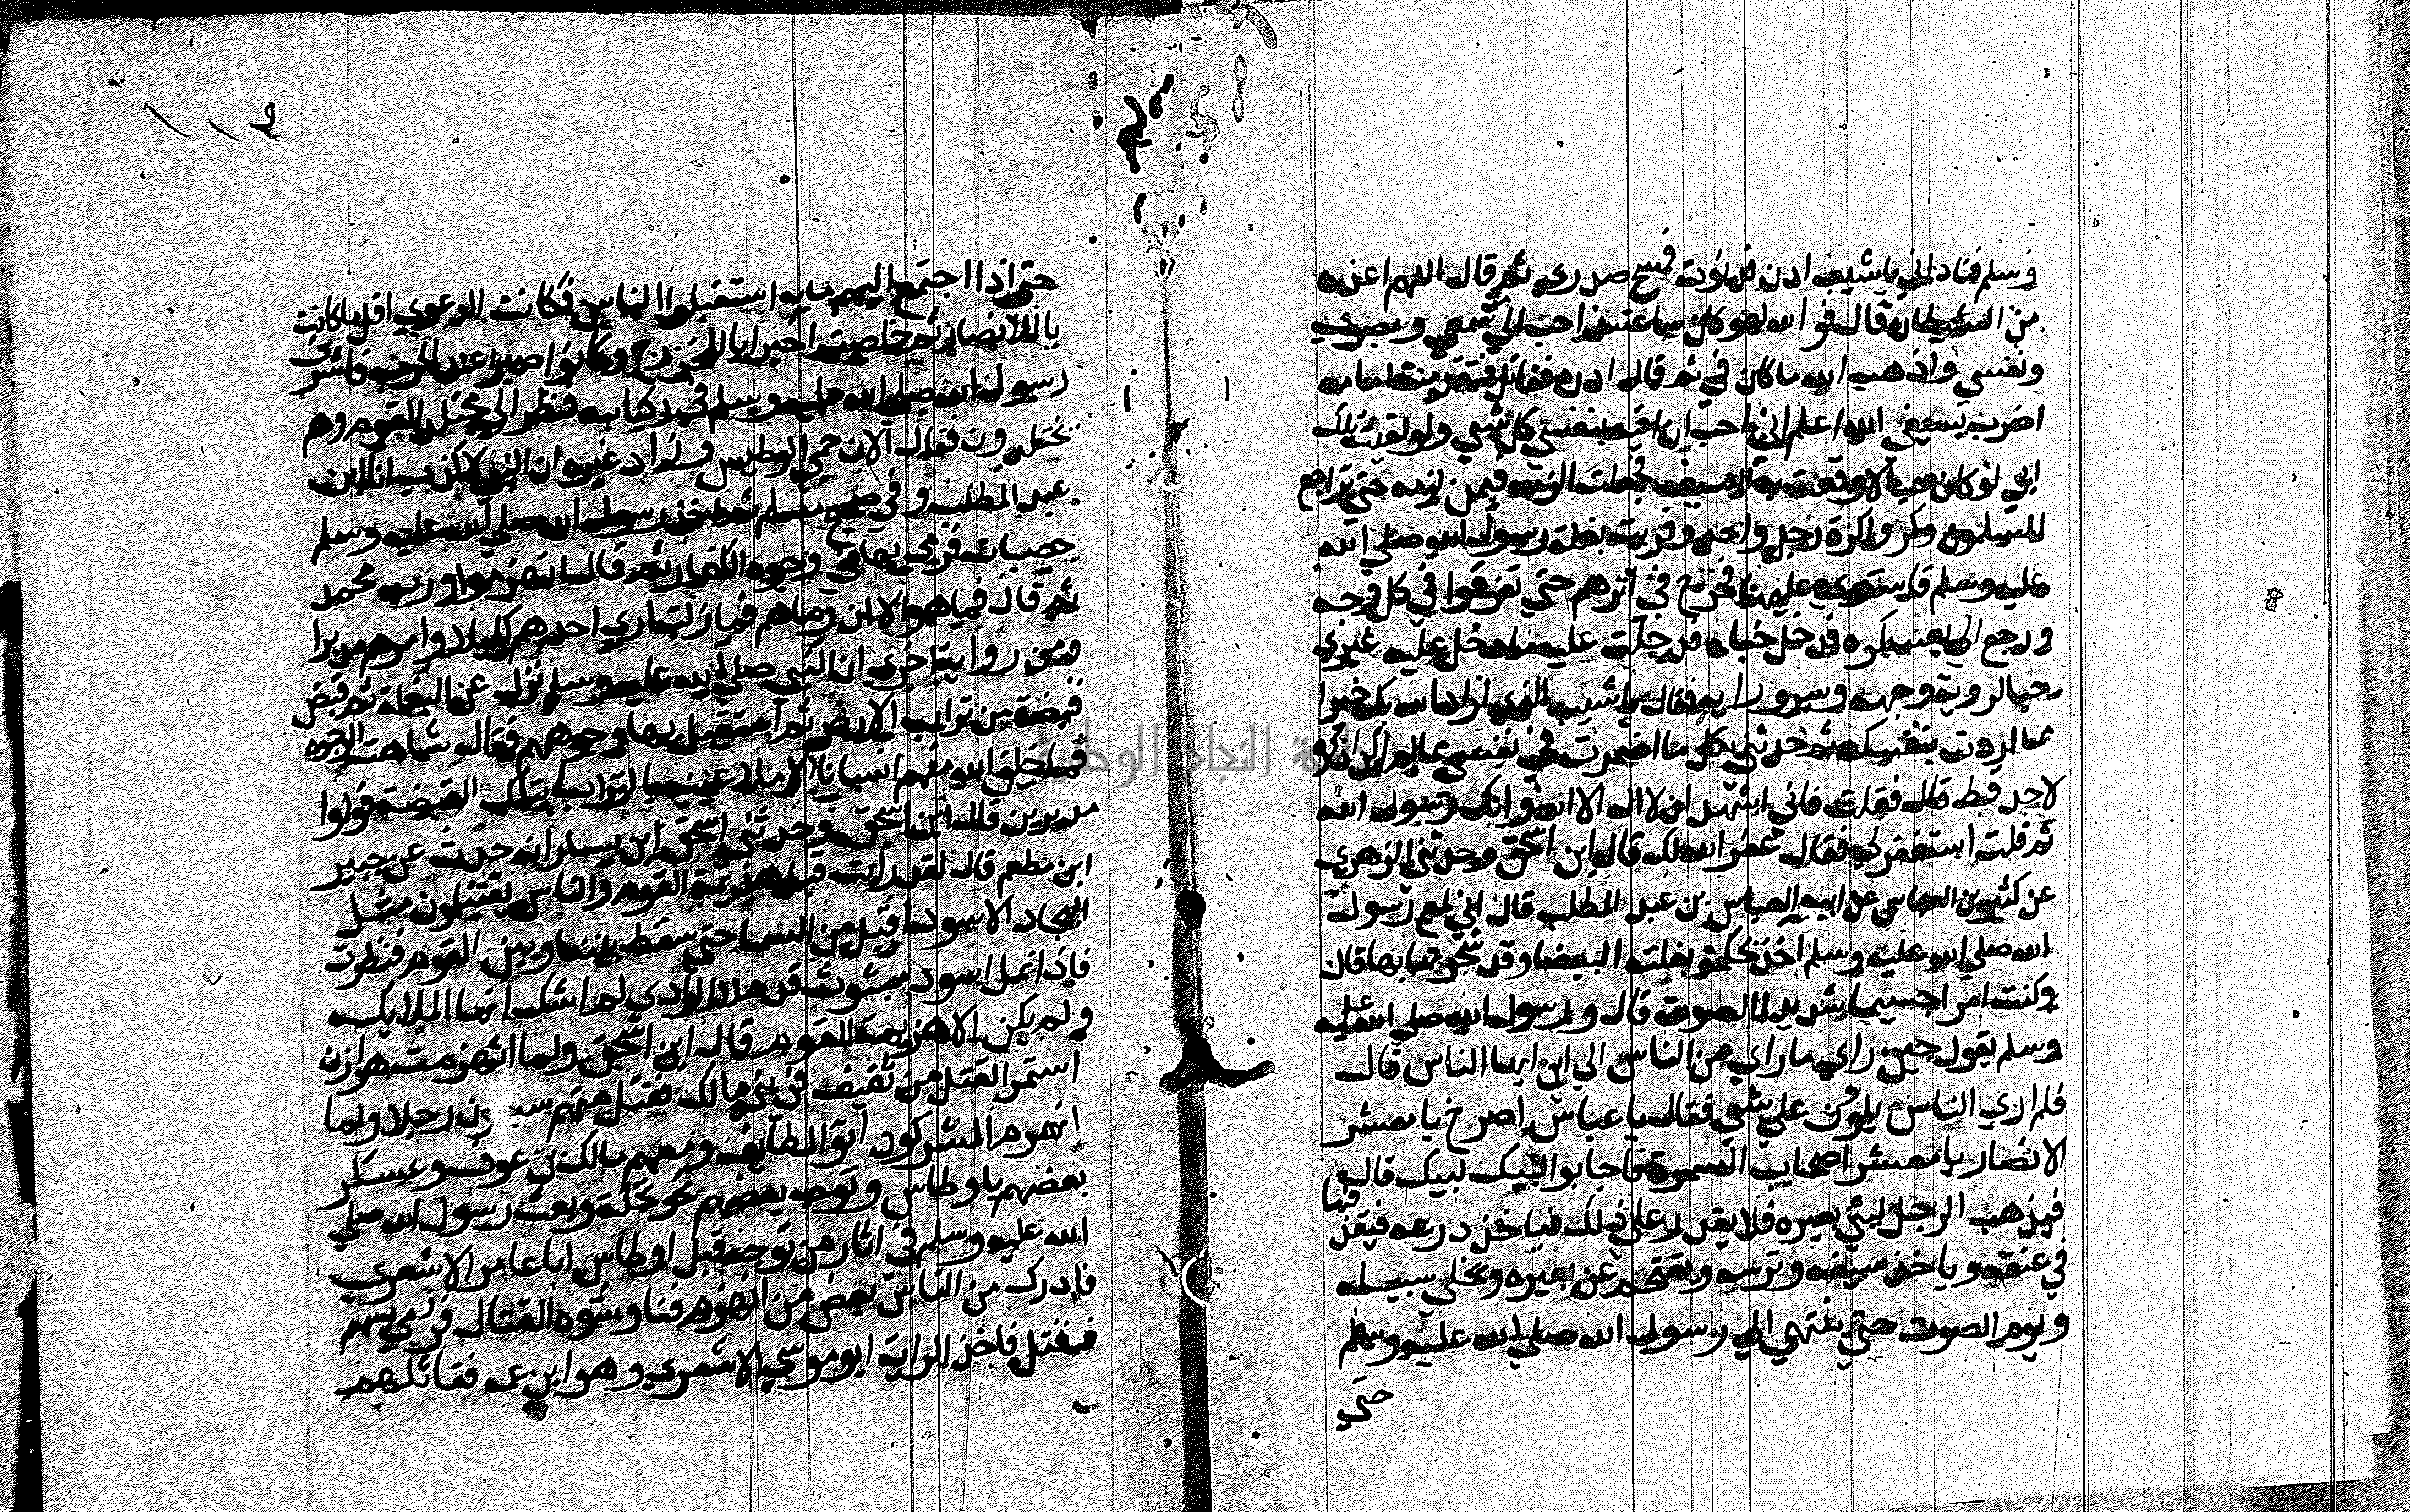 وسلم فناداني يا شيب ادن فدنوت فمسح صدري ثم قال اللهم اعذه
من الشيطان قال فو الله لهو كان ساعتئذ احب الي من سمعي وبصري
ونفسي واذهب الله ما كان في ثم قال ادن فقاتل فتقدمت امامه
اضرب بسيفي الله اعلم اني احب ان اقيه بنفسي كل شي ولو لقيت تلك
ابي لو كان حيا لاوقعت به السيف فجعلت الزمه فيمن لزمه حتي تراجع
المسلمون وكروا كرة رجل واحد وقربت بغلة رسول الله صلي الله
عليه وسلم فاستوي عليها فخرج في اثرهم حتي تفرقوا في كل وجه
ورجع الي معسكره فدخل خباه فدخلت عليه ما دخل عليه غيري
حبا لروية وجهه وسرورا به فقال يا شيب الذي اراد الله بك خيرا
مما اردت بنفسك ثم حدثني بكل ما اضمرت في نفسي مما لم اكن اذكره
لاحد قط قال فقلت فاني اشهد ان لا اله الا الله وانك رسول الله
ثم قلت استغفر لي فقال غفر الله لك قال ابن اسحق وحدثني الزهري
عن كثير بن العباس عن ابيه العباس بن عبد المطلب قال اني لمع رسول
الله صلي الله عليه وسلم اخذ بحكمة بغلته البيضا وقد شجرتها بها قال
وكنت امرا جسيما شديد الصوت قال ورسول الله صلي الله عليه
وسلم يقول حين راي ما راي من الناس الي اين ايها الناس قال
فلم اري الناس يلوون علي شي فقال يا عباس اصرخ يا معشر
الانصار يا معشر اصحاب السمرة فاجابوا لبيك لبيك قال
فيذهب الرجل ليثني بعيره فلا يقدر علي ذلك فياخذ درعه فيقذفها
في عنقه وياخذ سيفه وترسه ويقتحم عن بعيره ويخلي سبيله
ويوم الصوت حتي ينتهي الي رسول الله صلي الله عليه وسلم
حتي
حتي اذا اجتمع اليهم مايه استقبلوا الناس فكانت الدعوي اول ما كانت
يا للانصار ثم خلصت اخيرا يا للخزرج وكانوا صبرا عند الحرب فاشرف
رسول الله صلي الله عليه وسلم في ركابه فنظر الي مجتلد القوم وهم
يجتلدون فقال الان حمي الوطيس وزاد غيره انا النبي لا كذب انا ابن
عبد المطلب وفي صحيح مسلم ثم اخذ رسول الله صلي الله عليه وسلم
حصيات فرمي بها في وجوه الكفار ثم قال انهزموا ورب محمد
ثم قال فما هو الا ان رماهم فما زلت اري احدهم كليلا وامرهم مدبرا
ومن رواية اخري ان النبي صلي الله عليه وسلم نزل عن البغلة ثم قبض
قبضة من تراب الارض ثم استقبل بها وجوههم فقال شاهت الوجوه
فما خلق الله منهم انسانا الا ملا عينيه بالتراب بتلك القبضة فولوا
مدبرين قال ابن اسحق وحدثني اسحق ابن يسار انه حدث عن جبير
ابن مطعم قال لقد رايت قبل هزيمة القوم والناس يقتتلون مثل
البجاد الاسود اقبل من السما حتي سقط بيننا وبين القوم فنظرت
فاذا نمل اسود مبثوث قد ملا الوادي لم اشك انها الملايكه
ولم يكن الا هزيمة القوم قال ابن اسحق ولما انهزمت هوازن
استمر القتل من ثقيف في بني مالك فقتل منهم سبعون رجلا ولما
انهزم المشركون اتوا الطايف ومعهم مالك بن عوف وعسكر
بعضهم باوطاس وتوجه بعضهم نحو نخلة وبعث رسول الله صلي
الله عليه وسلم في اثار من توجه قبل اوطاس ابا عامر الاشعري
فادرك من الناس بعض من انهزم فناوشوه القتال فرمي بسهم
فقتل فاخذ الراية ابو موسي الاشعري وهو ابن عمه فقاتلهم